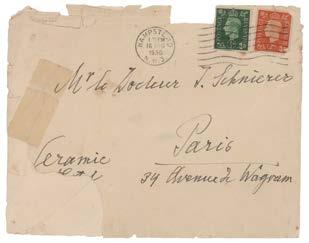 HAMPSTEAD
N.W.3
Mr le Docteur J. Schnierer
Paris
39 Avenue de Wagram
Ceramic